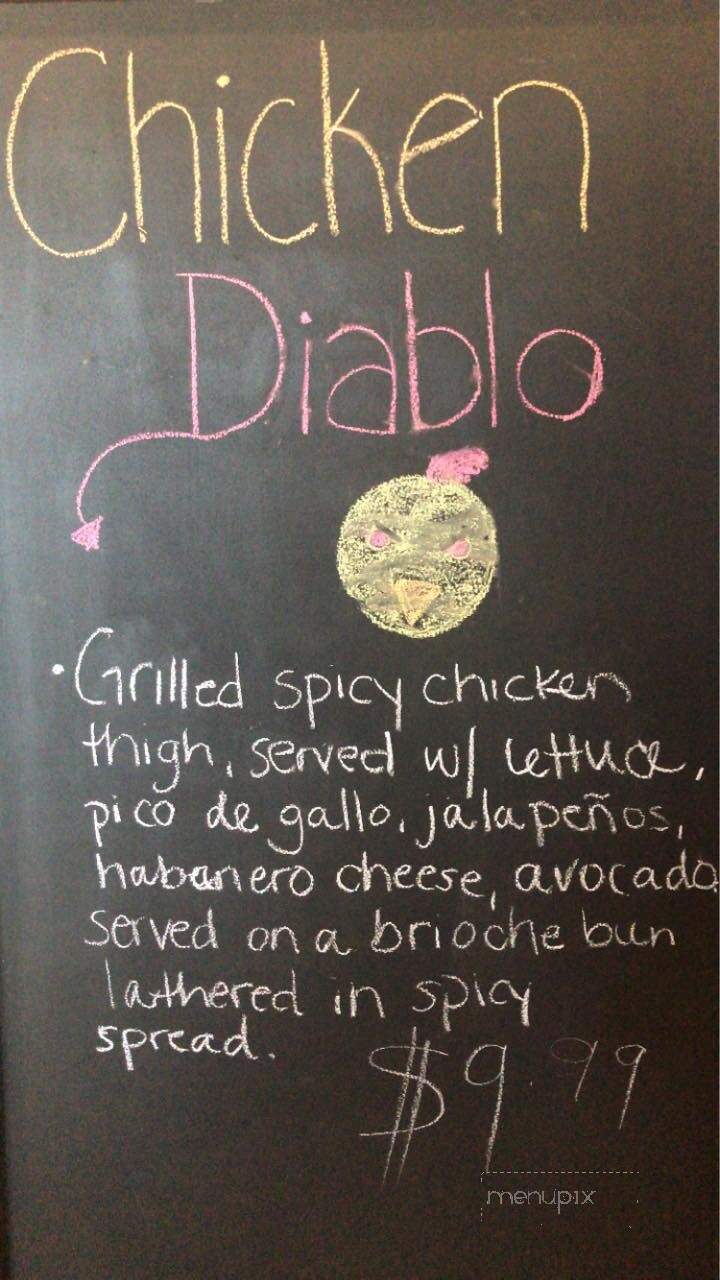 Chicken
Diablo
• Grilled spicy chicken
thigh, served w/ lettuce,
pico de gallo, jalapeños,
habanero cheese, avocado
served on a brioche bun
lathered in spicy
spread.
$9.99
menupix